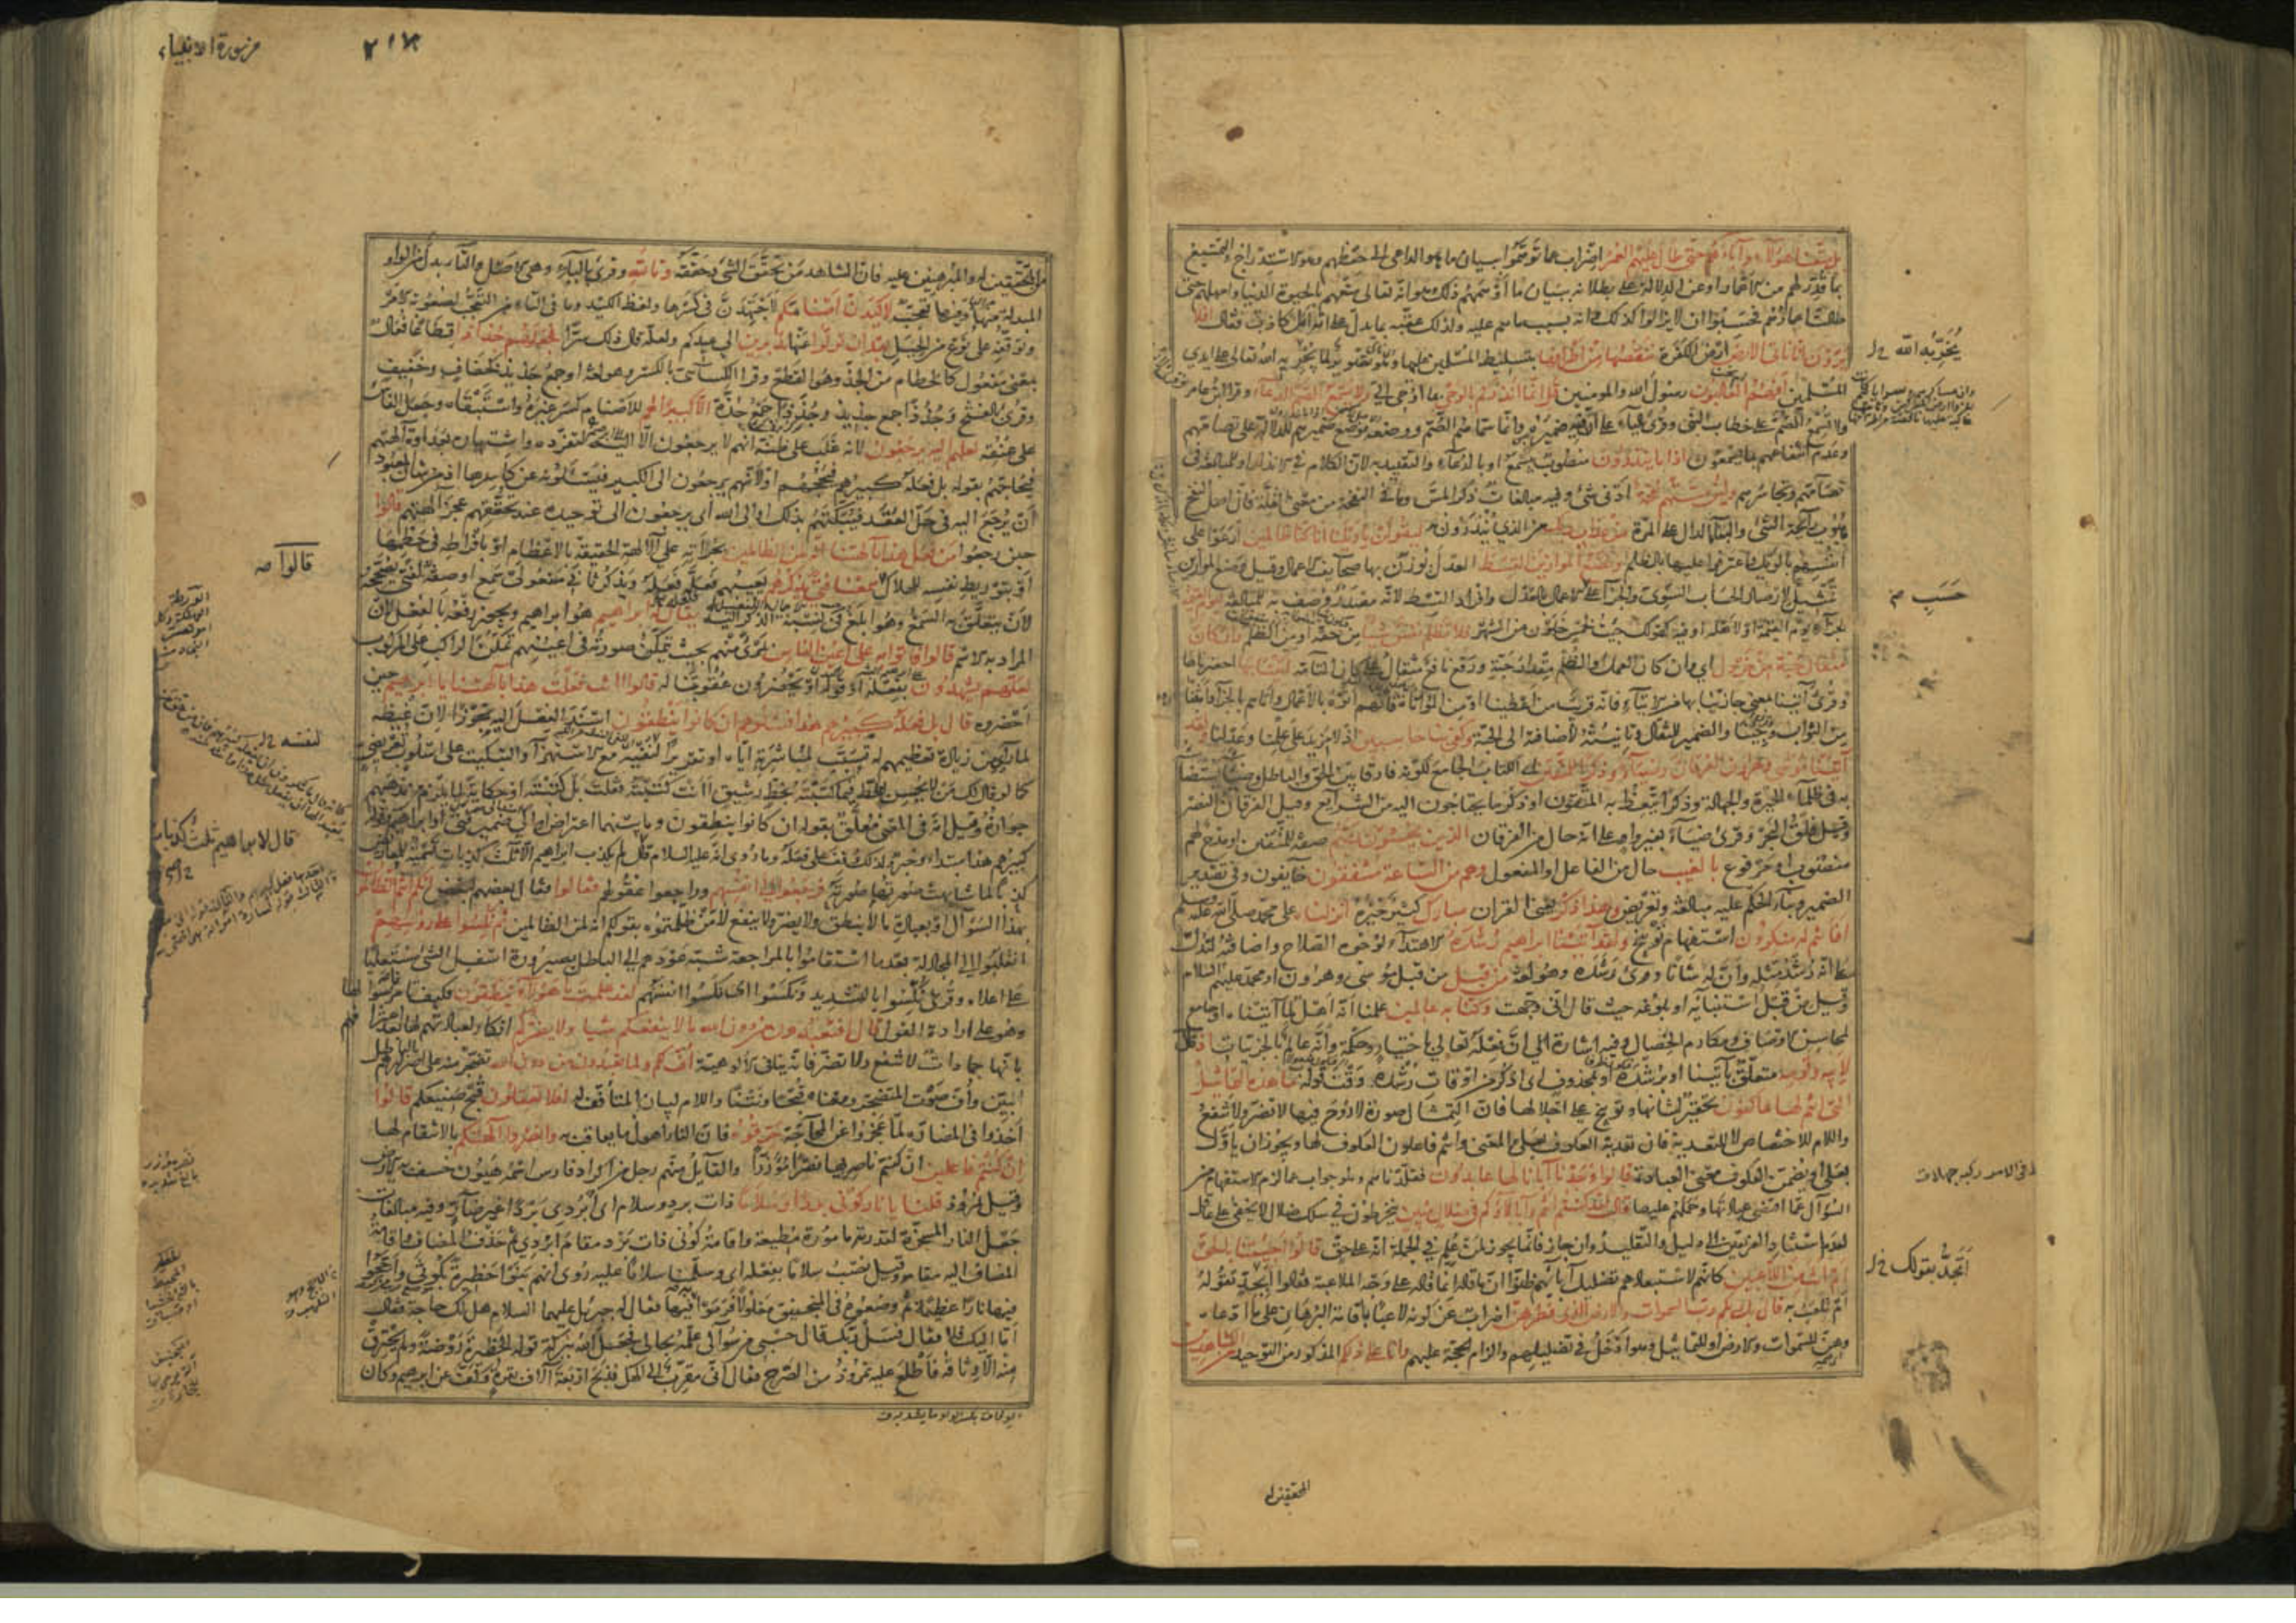 بل متعنا هؤلاء وآباءهم حتى طال عليهم العمر اضراب عما توهموا ببيان ما هو الداعي الى حفظهم وهو الاستدراج والتمتيع
بما قدر لهم من الاعمار او عن الدلالة على بطلانه ببيان ما اوهمهم ذلك وهو انه تعالى متعهم بالحيوة الدنيا وامهلهم حتى
طالت اعمارهم فحسبوا ان لا يزالوا كذلك وانه بسبب ما هم عليه ولذلك عقبه بما يدل على انه امل كاذب فقال افلا
يرون انا ناتي الارض ارض الكفرة ننقصها من اطرافها بتسليط المسلمين عليها وهو تصوير لما يجريه الله تعالى على ايدي
المسلمين افهم الغالبون رسول الله والمومنين قل انما انذركم بالوحي بما اوحي الي ولا يسمع الصم الدعاء وقرأ ابن عامر
ولا تسمع الصم على خطاب النبي وقرئ بالياء على ان فيه ضميره وانما سماهم الصم ووضعه موضع ضميرهم للدلالة على تصامهم
وعدم انتفاعهم بما يسمعون اذا ما ينذرون منصوب بيسمع او بالدعاء والتقييد به لان الكلام في الانذار او للمبالغة في
تصامهم وتجاسرهم ولئن مستهم نفحة ادنى شئ وفيه مبالغات ذكر المس وما في النفحة من معنى القلة فان اصل النفح
هبوب رائحة الشئ والبناء الدال على المرة من عذاب ربك من الذي ينذرون به ليقولن يا ويلنا انا كنا ظالمين لدعوا على
انفسهم بالويل واعترفوا عليها بالظلم ونضع الموازين القسط العدل توزن بها صحائف الاعمال وقيل وضع الموازين
تمثيل لارصاد الحساب السوي والجزاء على الاعمال بالعدل وافراد القسط لانه مصدر وصف به للمبالغة ليوم القيمة
لجزاء يوم القيمة او لاهله او فيه كقولك جئت لخمس خلون من الشهر فلا تظلم نفس شيئا من حقه او من الظلم وان كان
مثقال حبة من خردل اي وان كان العمل او الظلم مقدار حبة ورفع نافع مثقال على كان التامة اتينا بها احضرناها
وقرئ آتينا بمعنى جازينا بها من الايتاء فانه قريب من اعطينا او من المواتاة فانهم اتوه بالاعمال واتاهم بالجزاء واثبنا
من الثواب وجئنا والضمير للمثقال وتانيثه لاضافته الى الحبة وكفى بنا حاسبين اذ لا مزيد على علمنا وعدلنا ولقد
آتينا موسى وهرون الفرقان وضياء وذكرا للمتقين اي الكتاب الجامع لكونه فارقا بين الحق والباطل وضياء يستضاء
به في ظلماء الحيرة والجهالة وذكرا يتعظ به المتقون او ذكر ما يحتاجون اليه من الشرائع وقيل الفرقان النصر
وقيل فلق البحر وقرئ ضياء بغير واو على انه حال من الفرقان الذين يخشون ربهم صفة للمتقين او مدح لهم
منصوب او مرفوع بالغيب حال من الفاعل او المفعول وهم من الساعة مشفقون خائفون وفي تصدير
الضمير وبناء الحكم عليه مبالغة وتعريض وهذا ذكر يعني القران مبارك كثير خيره انزلناه على محمد صلى الله عليه وسلم
افانتم له منكرون استفهام توبيخ ولقد آتينا ابراهيم رشده الاهتداء لوجوه الصلاح واضافته لتدل
على انه رشد مثله وان له شانا وقرئ رشده وهو لغة من قبل من قبل موسى وهرون او محمد عليهم السلام
وقيل من قبل استنبائه او بلوغه حيث قال اني وجهت وكنا به عالمين علمنا انه اهل لما آتيناه او جامع
لمحاسن الاوصاف ومكارم الخصال وفيه اشارة الى ان فعله تعالى باختيار وحكمة وانه عالم بالجزئيات اذ قال
لابيه وقومه متعلق بآتينا او برشده او بمحذوف اي اذكر من اوقات رشده وقت قوله ما هذه التماثيل
التي انتم لها عاكفون تحقير لشانها وتوبيخ على اجلالها فان التمثال صورة لا روح فيها لا تضر ولا تنفع
واللام للاختصاص لا للتعدية فان تعدية العكوف بعلى والمعنى وانتم فاعلون العكوف لها ويجوز ان يأول
بعلى او يضمن العكوف معنى العبادة قالوا وجدنا آباءنا لها عابدين فقلدناهم وهو جواب عما لزم الاستفهام من
السؤال عما اقتضى عبادتها وحملهم عليها قال لقد كنتم انتم وآباؤكم في ضلال مبين منخرطون في سلك ضلال لا يخفى على عاقل
لعدم استناد الفريقين الى دليل والتقليد وان جاز فانما يجوز لمن علم في الجملة انه على حق قالوا اجئتنا بالحق
ام انت من اللاعبين كانهم لاستبعادهم تضليل آبائهم ظنوا ان ما قاله انما قاله على وجه الملاعبة فقالوا ابجد تقوله
ام تلعب به قال بل ربكم رب السموات والارض الذي فطرهن اضراب عن كونه لاعبا باقامة البرهان على ما ادعاه
وهن للسموات والارض او للتماثيل وهو ادخل في تضليلهم والزام الحجة عليهم وانا على ذلكم المذكور من التوحيد من الشاهدين
المحققين له
يخربه الله
حسب
أتجد بقولك
من سورة الانبياء
من المحققين له والمبرهنين عليه فان الشاهد من تحقق الشئ وحققه وتالله وقرئ بالباء وهي الاصل والتاء بدل من الواو
المبدلة منها وفيها تعجب لاكيدن اصنامكم لاجتهدن في كسرها ولفظ الكيد وما في التاء من التعجب لصعوبة الامر
وتوقفه على نوع من الحيل بعد ان تولوا عنها مدبرين الى عيدكم ولعله قال ذلك سرا فجعلهم جذاذا قطاعا فعال
بمعنى مفعول كالحطام من الجذ وهو القطع وقرأ الكسائي بالكسر وهو لغة او جمع جذيذ كخفاف وخفيف
وقرئ بالفتح وجذذا جمع جذيذ وجذذا جمع جذة الا كبيرا لهم للاصنام كسر غيره واستبقاه وجعل الفاس
على عنقه لعلهم اليه يرجعون لانه غلب على ظنه انهم لا يرجعون الا اليه لتفرده واشتهاره بعداوة آلهتهم
فيحاجهم بقوله بل فعله كبيرهم فيحجهم او لانهم يرجعون الى الكبير فيسئلونه عن كاسرها اذ من شان المعبود
ان يرجع اليه في حل العقد فيبكتهم بذلك او الى الله اي يرجعون الى توحيده عند تحققهم عجز آلهتهم قالوا
حين رجعوا من فعل هذا بآلهتنا انه لمن الظالمين بجرأته على الآلهة الحقيقة بالاعظام او بافراطه في حطمها
او بتوريط نفسه للهلاك قالوا سمعنا فتى يذكرهم يعيبهم فلعله فعله ويذكر ثاني مفعولي سمع او صفة لفتى مصححة
لان يتعلق به السمع وهو ابلغ في نسبة الذكر اليه يقال له ابراهيم هو ابراهيم ويجوز رفعه بالفعل لان
المراد به الاسم قالوا فاتوا به على اعين الناس بمرأى منهم بحيث تتمكن صورته في اعينهم تمكن الراكب على المركوب
لعلهم يشهدون بفعله او قوله او يحضرون عقوبتنا له قالوا اانت فعلت هذا بآلهتنا يا ابرهيم حين
احضروه قال بل فعله كبيرهم هذا فسئلوهم ان كانوا ينطقون اسند الفعل اليه تجوزا لان غيظه
لما رأى من زيادة تعظيمهم له تسبب لمباشرته اياه او تقريرا لنفيه مع الاستهزاء والتبكيت على اسلوب تعريضي
كما لو قال لك من لا يحسن الخط فيما كتبته بخط رشيق أانت كتبته فقلت بل كتبته او حكاية لما يلزم من مذهبهم
جوازه وقيل انه في المعنى متعلق بقوله ان كانوا ينطقون وما بينهما اعتراض او الى ضمير فتى او ابراهيم وقوله
كبيرهم هذا مبتدأ وخبر ولذلك وقف على فعله وما روي انه عليه السلام قال لم يكذب ابراهيم الا ثلث كذبات تسمية للمعاريض
كذبا لما شابهت صورتها صورته فرجعوا الى انفسهم وراجعوا عقولهم فقالوا فقال بعضهم لبعض انكم انتم الظالمون
بهذا السؤال او بعبادة ما لا ينطق ولا يضر ولا ينفع لا من ظلمتموه بقولكم انه لمن الظالمين ثم نكسوا على رؤسهم
انقلبوا الى المجادلة بعد ما استقاموا بالمراجعة شبه عودهم الى الباطل بصيرورة اسفل الشئ مستعليا
على اعلاه وقرئ نكسوا بالتشديد ونكسوا اي نكسوا انفسهم لقد علمت ما هؤلاء ينطقون فكيف تامرنا بسؤالها
وهو على ارادة القول قال افتعبدون من دون الله ما لا ينفعكم شيئا ولا يضركم انكار لعبادتهم لها بعد اعترافهم
بانها جمادات لا تنفع ولا تضر فانه ينافي الالوهية اف لكم ولما تعبدون من دون الله تضجر منه على اصرارهم بالباطل
البين واف صوت المتضجر ومعناه قبحا ونتنا واللام لبيان المتأفف له افلا تعقلون قبح صنيعكم قالوا
اخذوا في المضارة لما عجزوا عن المحاجة حرقوه فان النار اهول ما يعاقب به وانصروا آلهتكم بالانتقام لها
ان كنتم فاعلين ان كنتم ناصرين لها نصرا مؤزرا والقائل منهم رجل من اكراد فارس اسمه هيون خسف به الارض
وقيل نمروذ قلنا يا نار كوني بردا وسلاما ذات برد وسلام اي ابردي بردا غير ضار وفيه مبالغات
جعل النار المسخرة لقدرته مامورة مطيعة واقامة كوني ذات برد مقام ابردي ثم حذف المضاف واقامة
المضاف اليه مقامه وقيل نصب سلاما بفعله اي وسلمنا سلاما عليه روي انهم بنوا حظيرة بكوثى واججوا
فيها نارا عظيمة ثم وضعوه في المنجنيق مغلولا فرموا به فيها فقال له جبريل عليهما السلام هل لك حاجة فقال
اما اليك فلا فقال فسل ربك قال حسبي من سؤالي علمه بحالي فجعل الله ببركة قوله الحظيرة روضة ولم يحترق
منه الا وثاقه فاطلع عليه نمروذ من الصرح فقال اني مقرب الى الهك فذبح اربعة آلاف بقرة وكف عن ابرهيم وكان
قالوا صه
لنفسه
قال لابراهيم ثلث كذبات